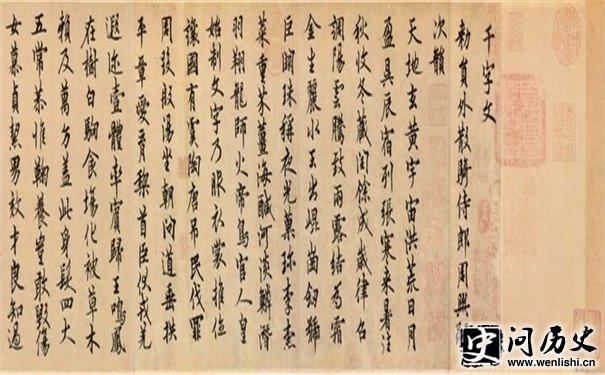 千字文
勅員外散騎侍郎周興
次韻
天地玄黃宇宙洪荒日月
盈昃辰宿列張寒來暑往
秋收冬藏閏餘成歲律召
調陽雲騰致雨露結為霜
金生麗水玉出崐崗劒號
巨闕珠稱夜光菓珍李柰
菜重芥薑海醎河淡鱗潛
羽翔龍師火帝鳥官人皇
始制文字乃服衣裳推位
讓國有虞陶唐吊民伐罪
周發殷湯坐朝問道垂拱
平章愛育黎首臣伏戎羌
遐邇壹體率賓歸王鳴鳳
在樹白駒食場化被草木
賴及萬方蓋此身髮四大
五常恭惟鞠養豈敢毀傷
女慕貞潔男效才良知過
史 问历史
www.wenlishi.cn